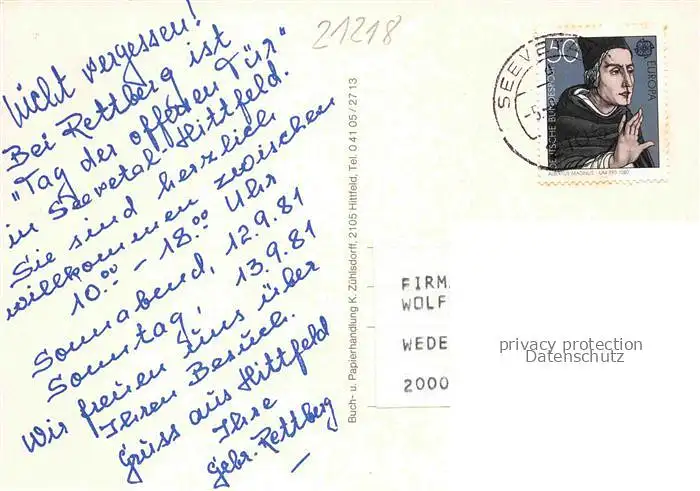 Nicht vergessen!
Bei Rettberg ist
"Tag der offenen Tür"
in Seevetal-Hittfeld.
Sie sind herzlich
willkommen zwischen
10.00 - 18.00 Uhr
Sonnabend, 12.9.81
Sonntag, 13.9.81
Wir freuen uns über
Ihren Besuch.
Gruss aus Hittfeld
Ihre
Gebr. Rettberg
21218
Buch- u. Papierhandlung K. Zühlsdorff, 2105 Hittfeld, Tel. 0 41 05 / 27 13
SEEVE
-5.
50
EUROPA
DEUTSCHE BUNDESPOST
ALBERTUS MAGNUS
FIRM
WOLF
WEDE
2000
privacy protection
Datenschutz